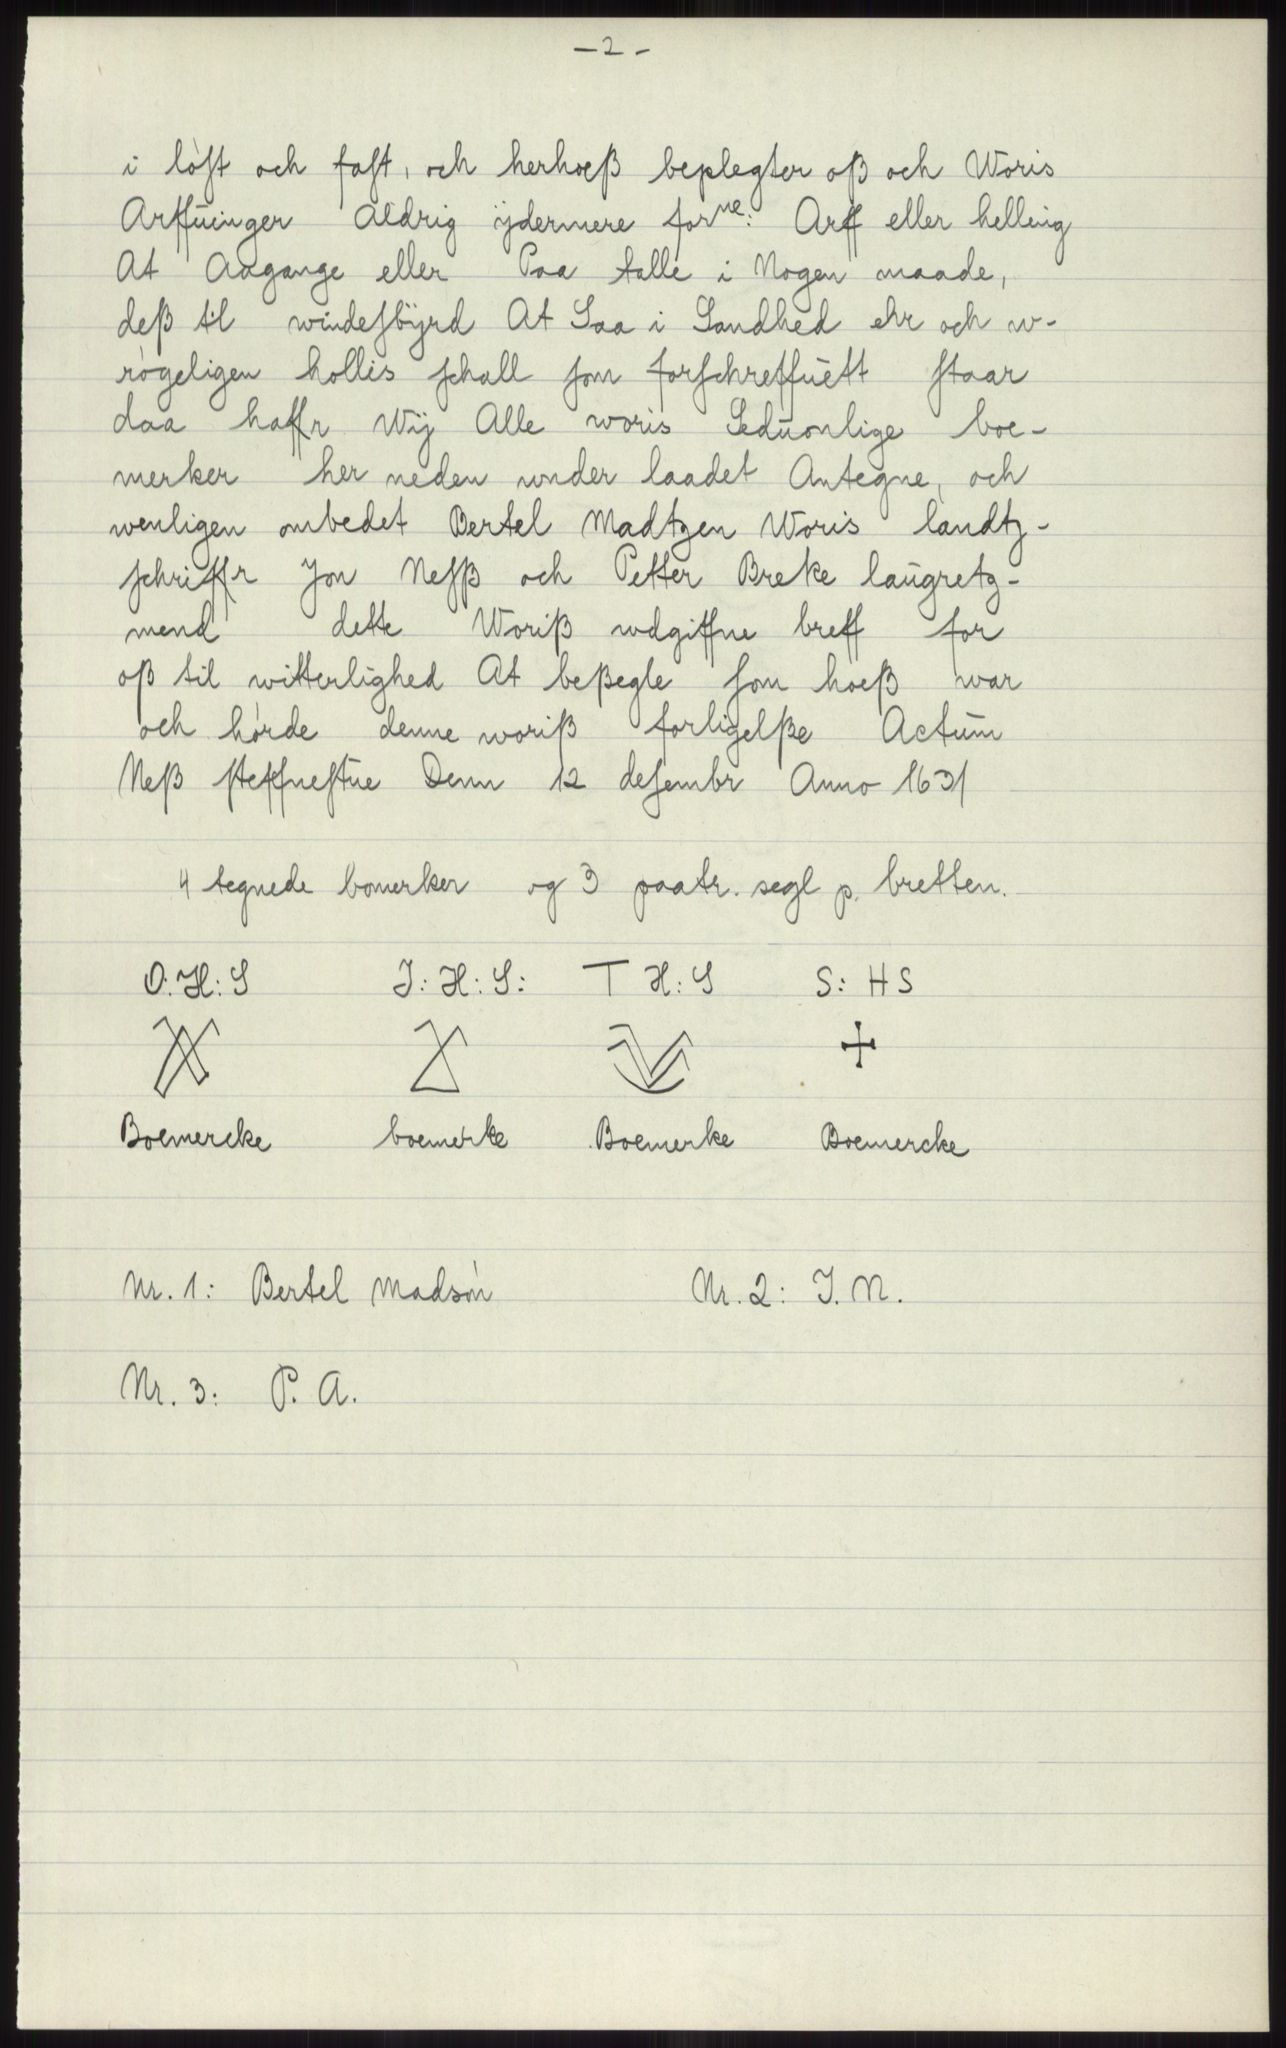 - 2 -
i löst och fast, och herhoeß beplegter oß och Woris
Arffuinger Aldrig ÿdermere forne: Arff eller helling
At Aagange eller Paa talle i Nogen maade,
deß til windeſbÿrd At Saa i Sandhed ehr och w-
rögeligen hollis ſchall ſom forſchreffuett ſtaar
daa haffr Wij Alle woris Seduonlige boe-
merker her neden under laadet Antegne, och
wenligen ombedet Bertel Madtzen Woris landtz-
ſchriffr Jon Neſß och Petter Breke laugretz-
mend dette Woriß wdgiffne breff for
oß til witterlighed At beßegle ſom hoeß war
och hörde denne woriß forligelße Actum
Neß ſteffneſtue Denn 12 deſembr Anno 1631
4 tegnede bomerker og 3 paatr. segl p. bretten.
O: H: S J: H: S: T H: S S: H S
Boemercke boemerke Boemerke Boemercke
Nr. 1: Bertel Madsön Nr. 2: J. N.
Nr. 3: P. A.